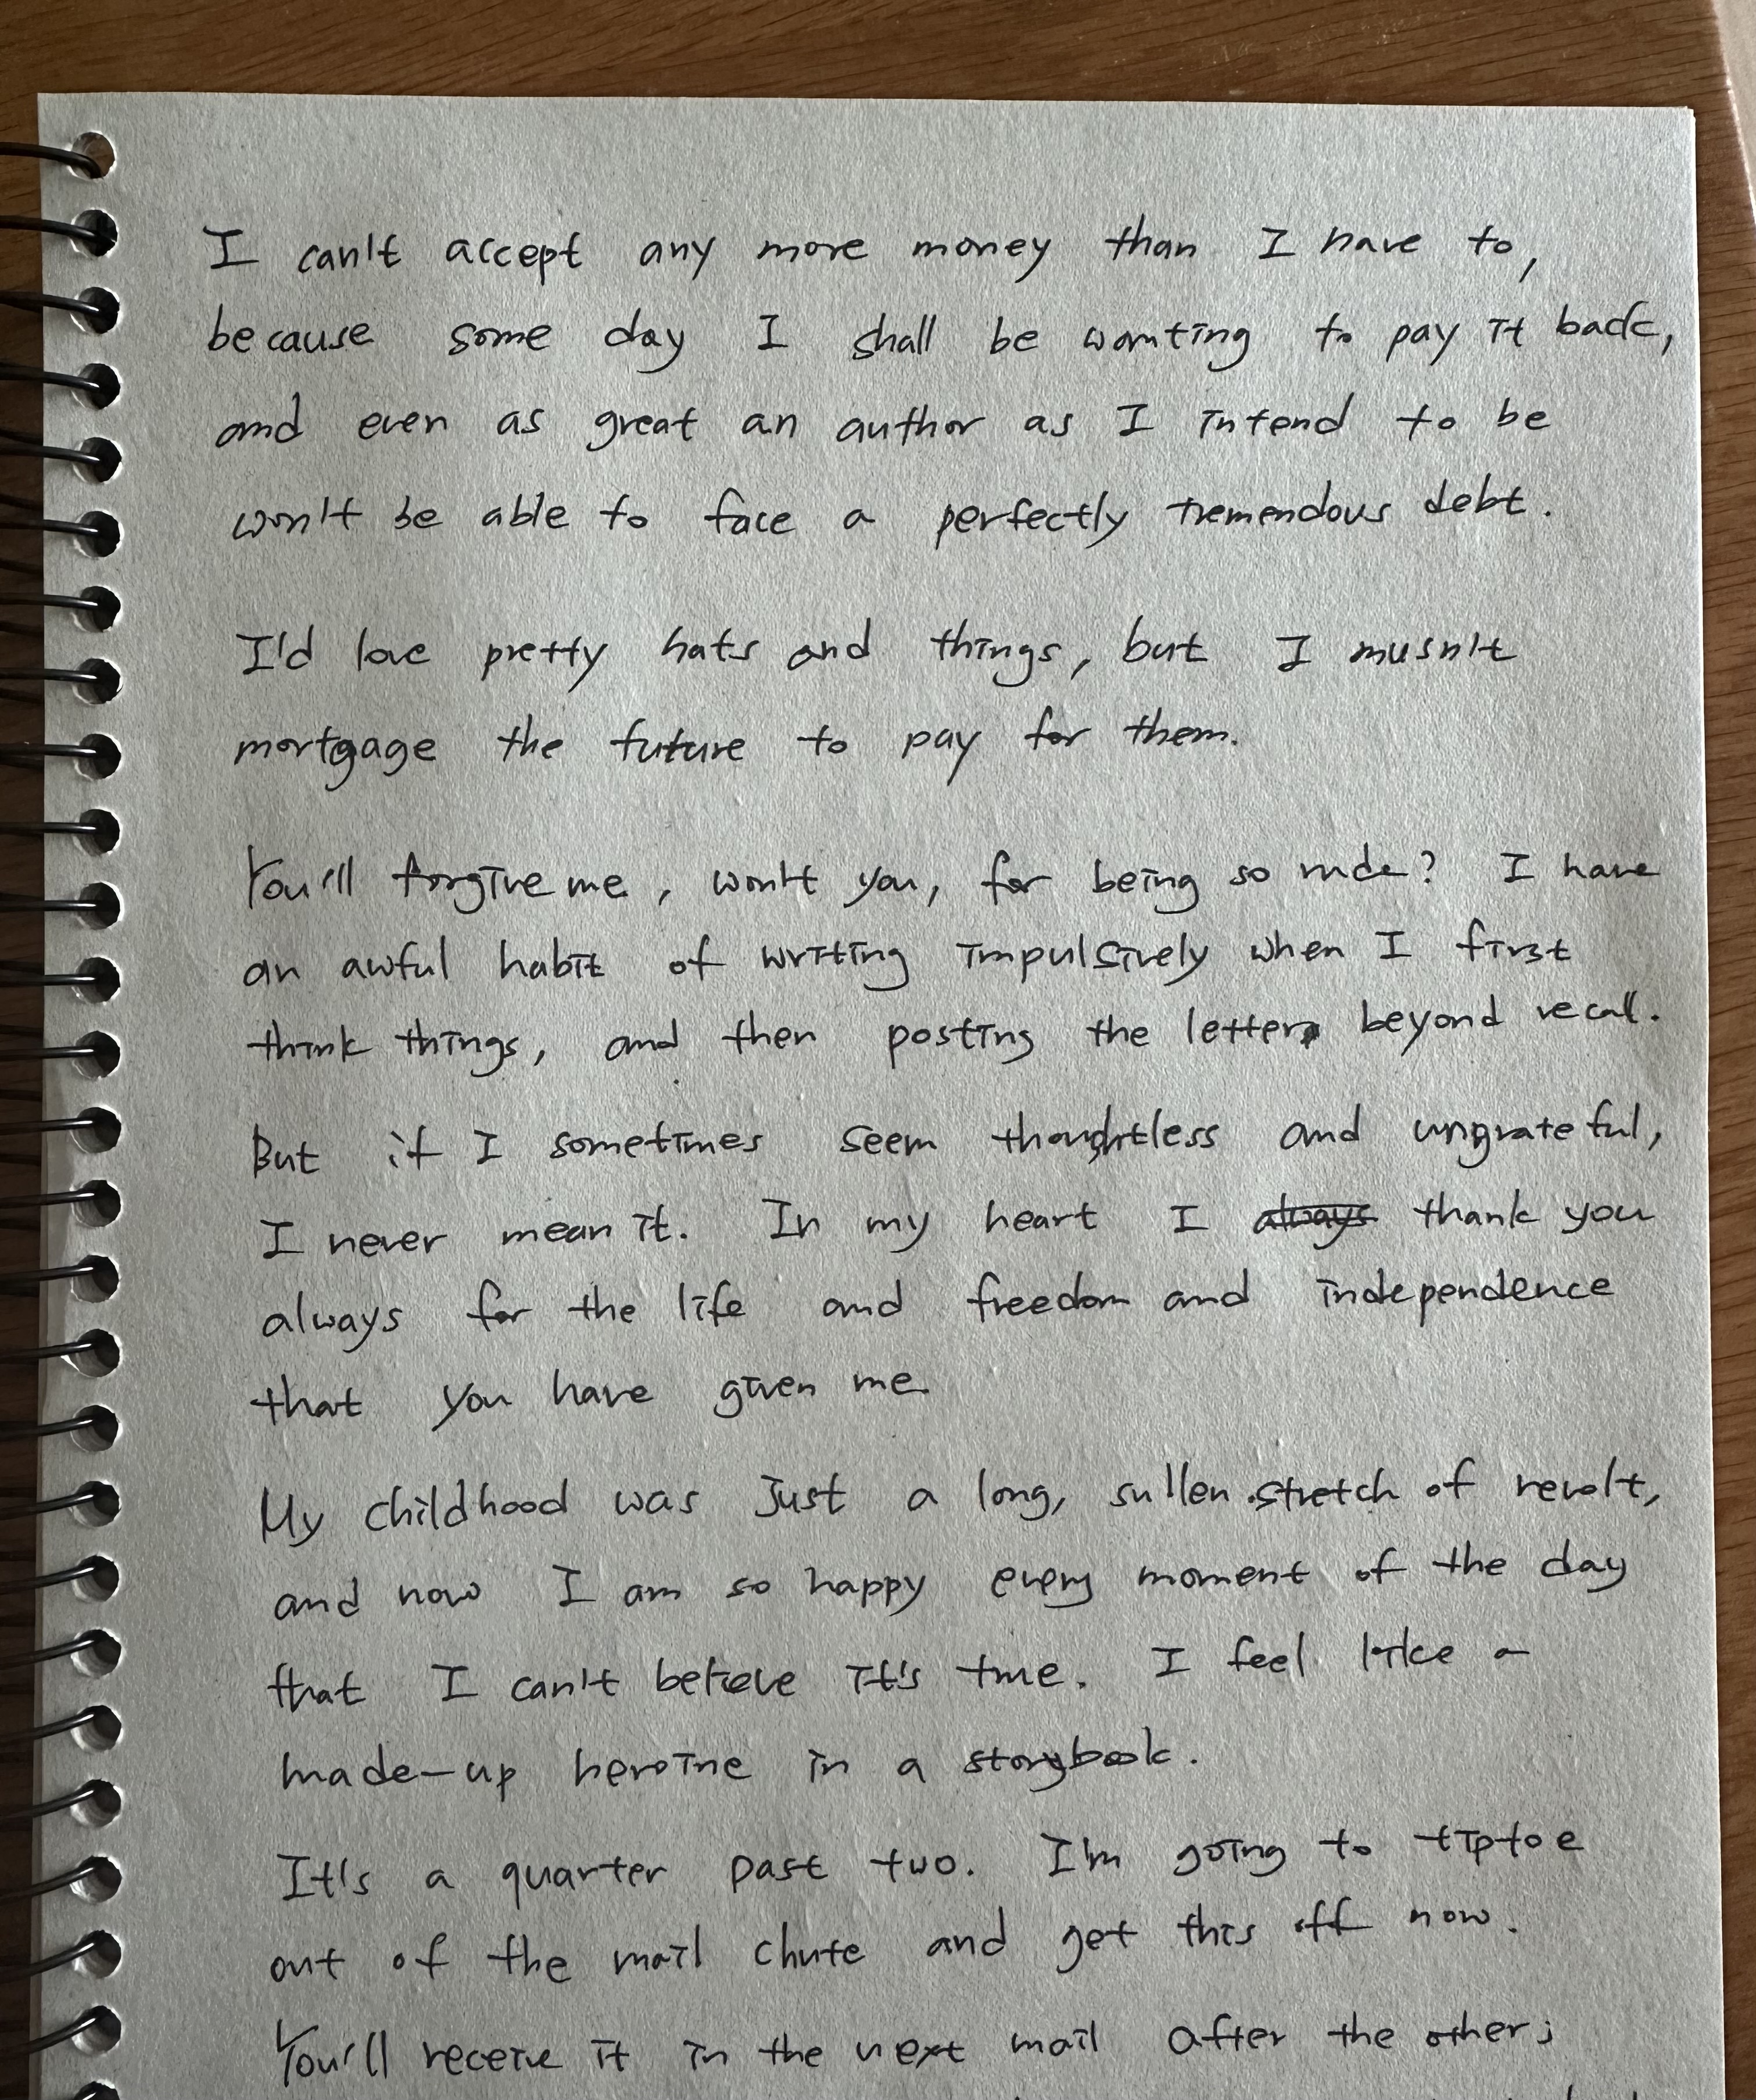 I can't accept any more money than I have to,
because some day I shall be wanting to pay it back,
and even as great an author as I intend to be
won't be able to face a perfectly tremendous debt.
I'd love pretty hats and things, but I musn't
mortgage the future to pay for them.
You'll forgive me, won't you, for being so rude? I have
an awful habit of writing impulsively when I first
think things, and then posting the letter beyond recall.
But if I sometimes seem thoughtless and ungrateful,
I never mean it. In my heart I always thank you
always for the life and freedom and independence
that you have given me.
My childhood was just a long, sullen stretch of revolt,
and now I am so happy every moment of the day
that I can't believe it's true. I feel like a
made-up heroine in a storybook.
It's a quarter past two. I'm going to tiptoe
out of the mail chute and get this off now.
You'll receive it in the next mail after the other;